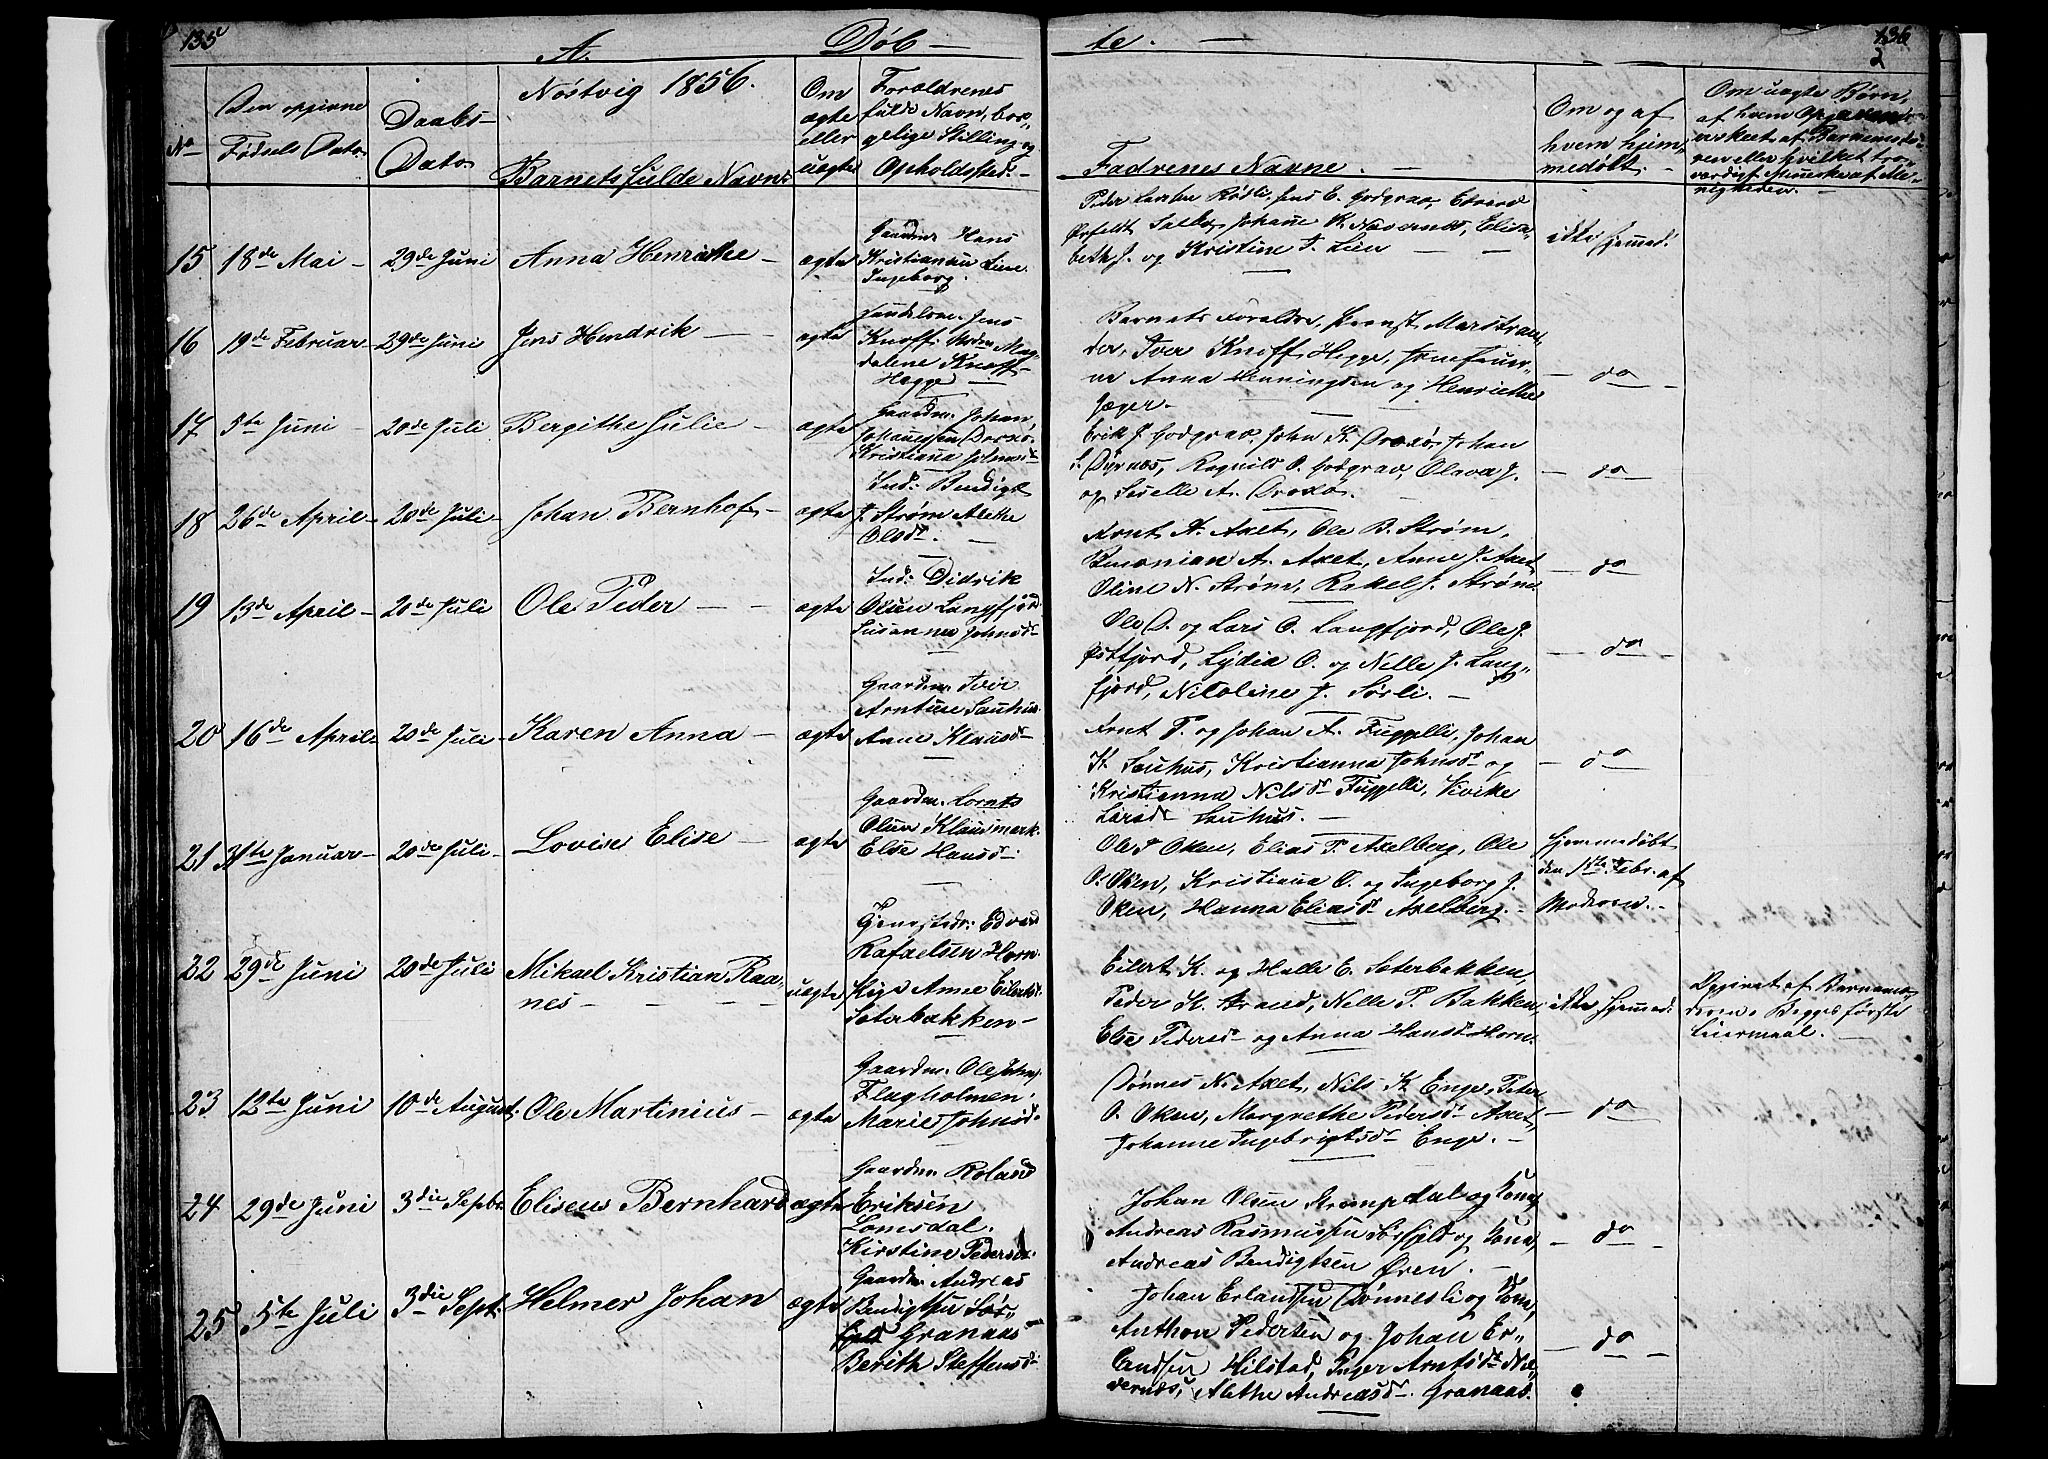 135
A. Døb-
te.
136
2
Nöstvig 1856.
No
Den opgivne
Fødsels Dato.
Daabs-
Dato.
Barnets fulde Navn.
Om
ægte
eller
uægte
Forældrenes
fulde Navn, bor-
gelige Stilling og
Opholdssted.
Fadrenes Navne.
Om og af
hvem hjem-
medøbt.
Om uægte Børn,
af hvem
nigheden.
15 18de Mai 29de Juni Anna Henrikke ægte
Gaardm. Hans
Kristiansen Lien
Ingeborg.
Peder Larsen Rødli, Jens E. Godgrav, Edvard
beth J. og Kristine T. Lien
ikke hjemmed.
16 19de Februar 29de Juni Jens Hendrik ægte
Handelsm. Jens
Knoff, Moder Mag-
dalene Knoff
Hegge
Barnets Foraldre, Provst Marstran-
der, Iver Knoff Hegge, Jomfruer-
ne Anna Henningsen og Henriette
Jæger.
do
17 5te Juni 20de Juli Bergithe Julie ægte
Gaardm. Johan
Johannesen
Kristiana
Erik J. Godgrav, John K. Dverø, Johan
L. Dyrnæs, Ragnild O. Godgrav, Olava J.
og Giselle A.
do
18 26de April 20de Juli Johan Bernhof ægte
Ind: Bendigt
J. Strøm
Olsdr.
Arnt A. Axet, Ole B. Strøm,
A. Axet, Anne J. Axet
Oline N. Strøm, Rakel J. Strøm.
do
19 13de April 20de Juli Ole Peder ægte
Ind: Didrik
Olsen Langfjord
Susanna Johnsdr
Ole D. og Lars O. Langfjord, Ole J.
Østfjord, Lydia O. og Nelle J. Lang-
fjord, Nikoline J. Sørli.
do
20 16de April 20de Juli Karen Anna ægte
Gaardm. Iver
Arntsen Sauhus
Anne Klausdr
Arnt P. og Johan A. Fuggelli, Johan
K. Sauhus, Kristianna Johnsdr og
Kristianna Nilsdr Fuggelli, Vivike
Larsdr Sauhus.
do
21 31te Januar 20de Juli Lovise Elise ægte
Gaardm. Lornts
Olsen Klausmark
Else Hansdr
Ole P Oken, Elias P. Axelberg, Ole
O. Oken, Kristiana O. og Ingeborg J.
Oken, Hanna Eliasdr Axelberg.
Hjemmedøbt
den 1ste Febr. af
Moderen.
22 29de Juni 20de Juli Mikael Kristian Raa-
nes uægte
Tjenestedr: Edvard
Rafaelsen Horn
Pige Anne Eilertsdr
Sæterbakken
Eilert K. og Halle E. Sæterbakken,
Peder H. Strand, Nelle P. Bakken,
Else Pedersdr og Anna Hansdr Horn.
ikke hjemmed.
Opgivet af Barnemo-
deren. Begges første
Leiermaal.
23 12te Juni 10de August Ole Martinius ægte
Gaardm. Ole Johns.
Flagholmen
Marie Johnsdr
Dønnes N. Axet, Nils K. Enge, Peter
O. Oken, Margrethe Pedersdr Axet,
Johanne Ingebrigtsdr Enge.
do
24 29de Juni 3die Septbr Eliseus Bernhard ægte
Gaardm. Roland
Eriksen
Lomsdal
Kirstine Pedersdr.
Johan Olsen Strompdal og Kone,
Andreas Rasmussen Sørfjeld og Kone,
Andreas Bendigtsen Øren.
do
25 5te Juli 3die Sept. Helmer Johan ægte
Gaardm Andreas
Bendigtsen Sør-
fjeld Granaas
Berith Steffensdr
Johan Erlandsen Tønnesli og Kone,
Anthon Pedersen og Johan Er-
landsen Hilstad, Inger Arntsdr
Mathe Andreasdr. Granaas.
do